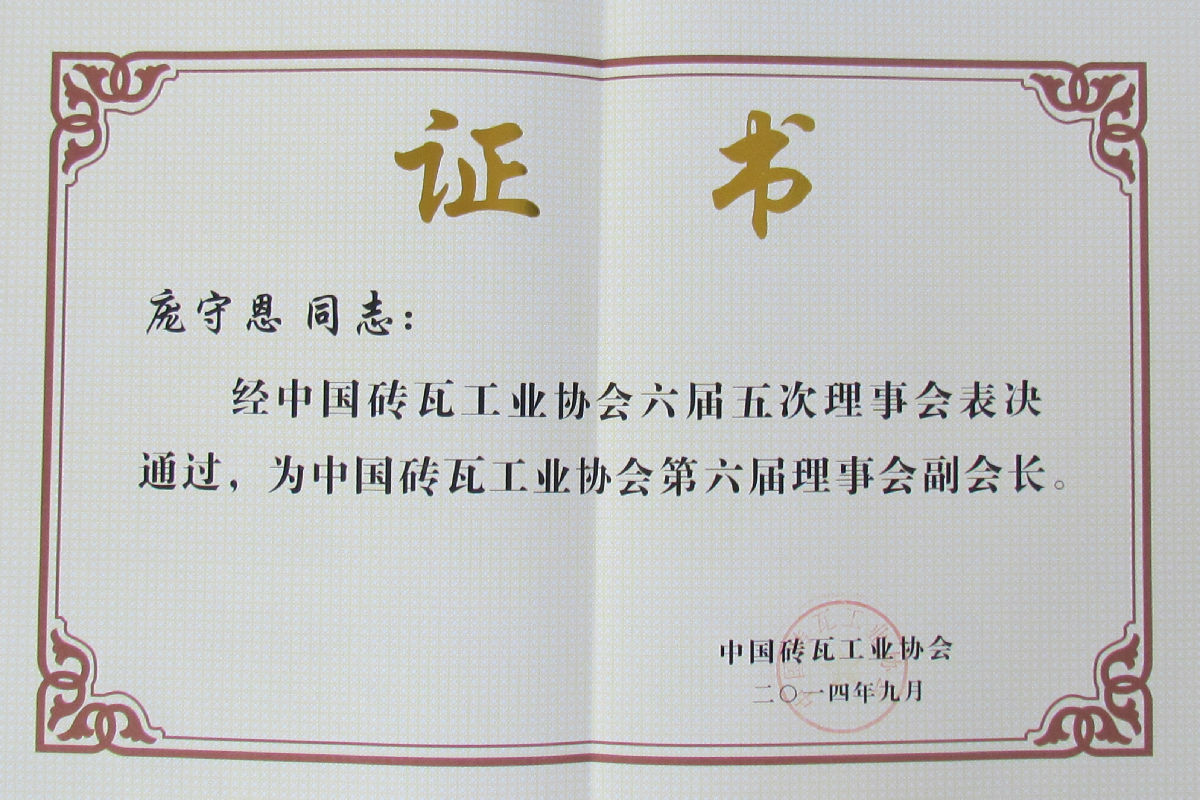 证 书
庞守恩 同志：
经中国砖瓦工业协会六届五次理事会表决
通过，为中国砖瓦工业协会第六届理事会副会长。
中国砖瓦工业协会
二〇一四年九月
中国砖瓦工业协会